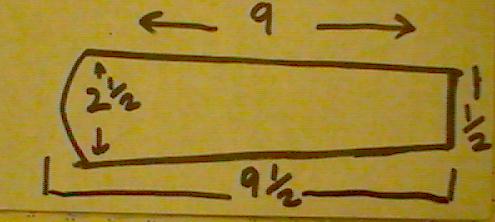 9
2 1/2
1/2
9 1/2